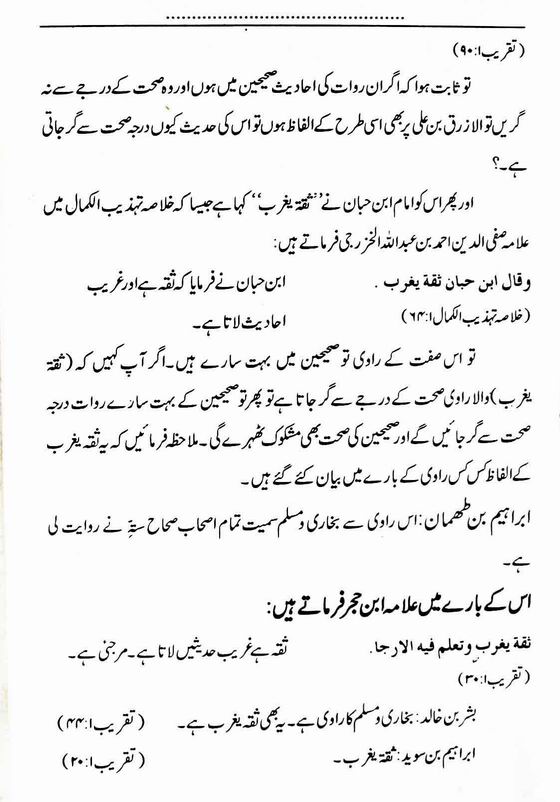 (تقریب ۱:۹۰)
تو ثابت ہوا کہ اگر ان روات کی احادیث صحیحین میں ہوں اور وہ صحت کے درجے سے نہ
گریں تو الازرق بن علی پر بھی اسی طرح کے الفاظ ہوں تو اس کی حدیث کیوں درجہ صحت سے گر جاتی
ہے۔؟
اور پھر اس کو امام ابن حبان نے ’’ثقۃ یغرب‘‘ کہا ہے جیسا کہ خلاصہ تہذیب الکمال میں
علامہ صفی الدین احمد بن عبداللہ الخزرجی فرماتے ہیں:
وقال ابن حبان ثقة يغرب . ابن حبان نے فرمایا کہ ثقہ ہے اور غریب
(خلاصہ تہذیب الکمال ۱:۶۴) احادیث لاتا ہے۔
تو اس صفت کے راوی تو صحیحین میں بہت سارے ہیں۔ اگر آپ کہیں کہ (ثقۃ
یغرب) والا راوی صحت کے درجے سے گر جاتا ہے تو پھر تو صحیحین کے بہت سارے روات درجہ
صحت سے گر جائیں گے اور صحیحین کی صحت بھی مشکوک ٹھہرے گی۔ ملاحظہ فرمائیں کہ یہ ثقہ یغرب
کے الفاظ کس کس راوی کے بارے میں بیان کئے گئے ہیں۔
ابراہیم بن طھمان: اس راوی سے بخاری و مسلم سمیت تمام اصحاب صحاح ستہ نے روایت لی
ہے۔
اس کے بارے میں علامہ ابن حجر فرماتے ہیں:
ثقة يغرب وتعلم فيه الارجا. ثقہ ہے غریب حدیثیں لاتا ہے۔ مرجئی ہے۔
(تقریب ۱:۳۰)
بشر بن خالد: بخاری و مسلم کا راوی ہے۔ یہ بھی ثقہ یغرب ہے۔ (تقریب ۱:۴۴)
ابراہیم بن سوید: ثقۃ یغرب۔ (تقریب ۱:۲۰)